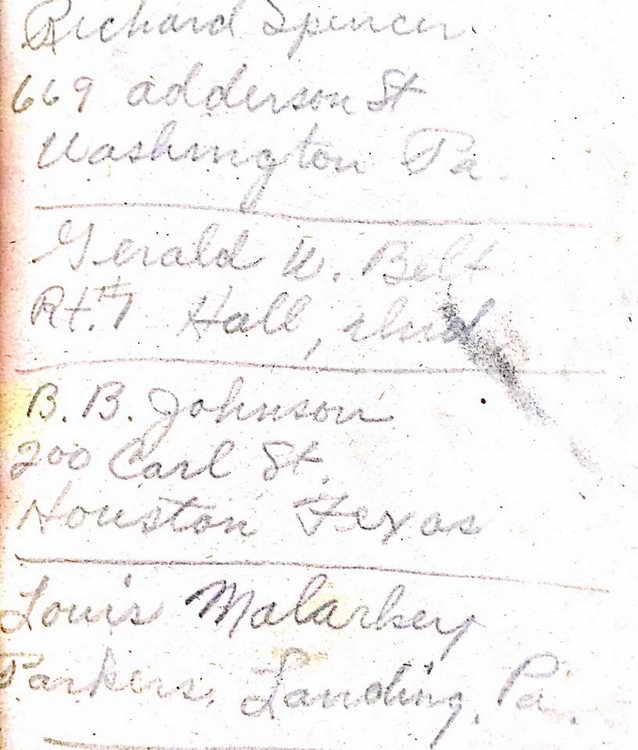 Richard Spencer.
669 Adderson St
Washington Pa.
Gerald W. Belt
Rt. #1 Hall,
B. B. Johnson
200 Carl St.
Houston Texas
Louis Malarkey
Parkers Landing, Pa.